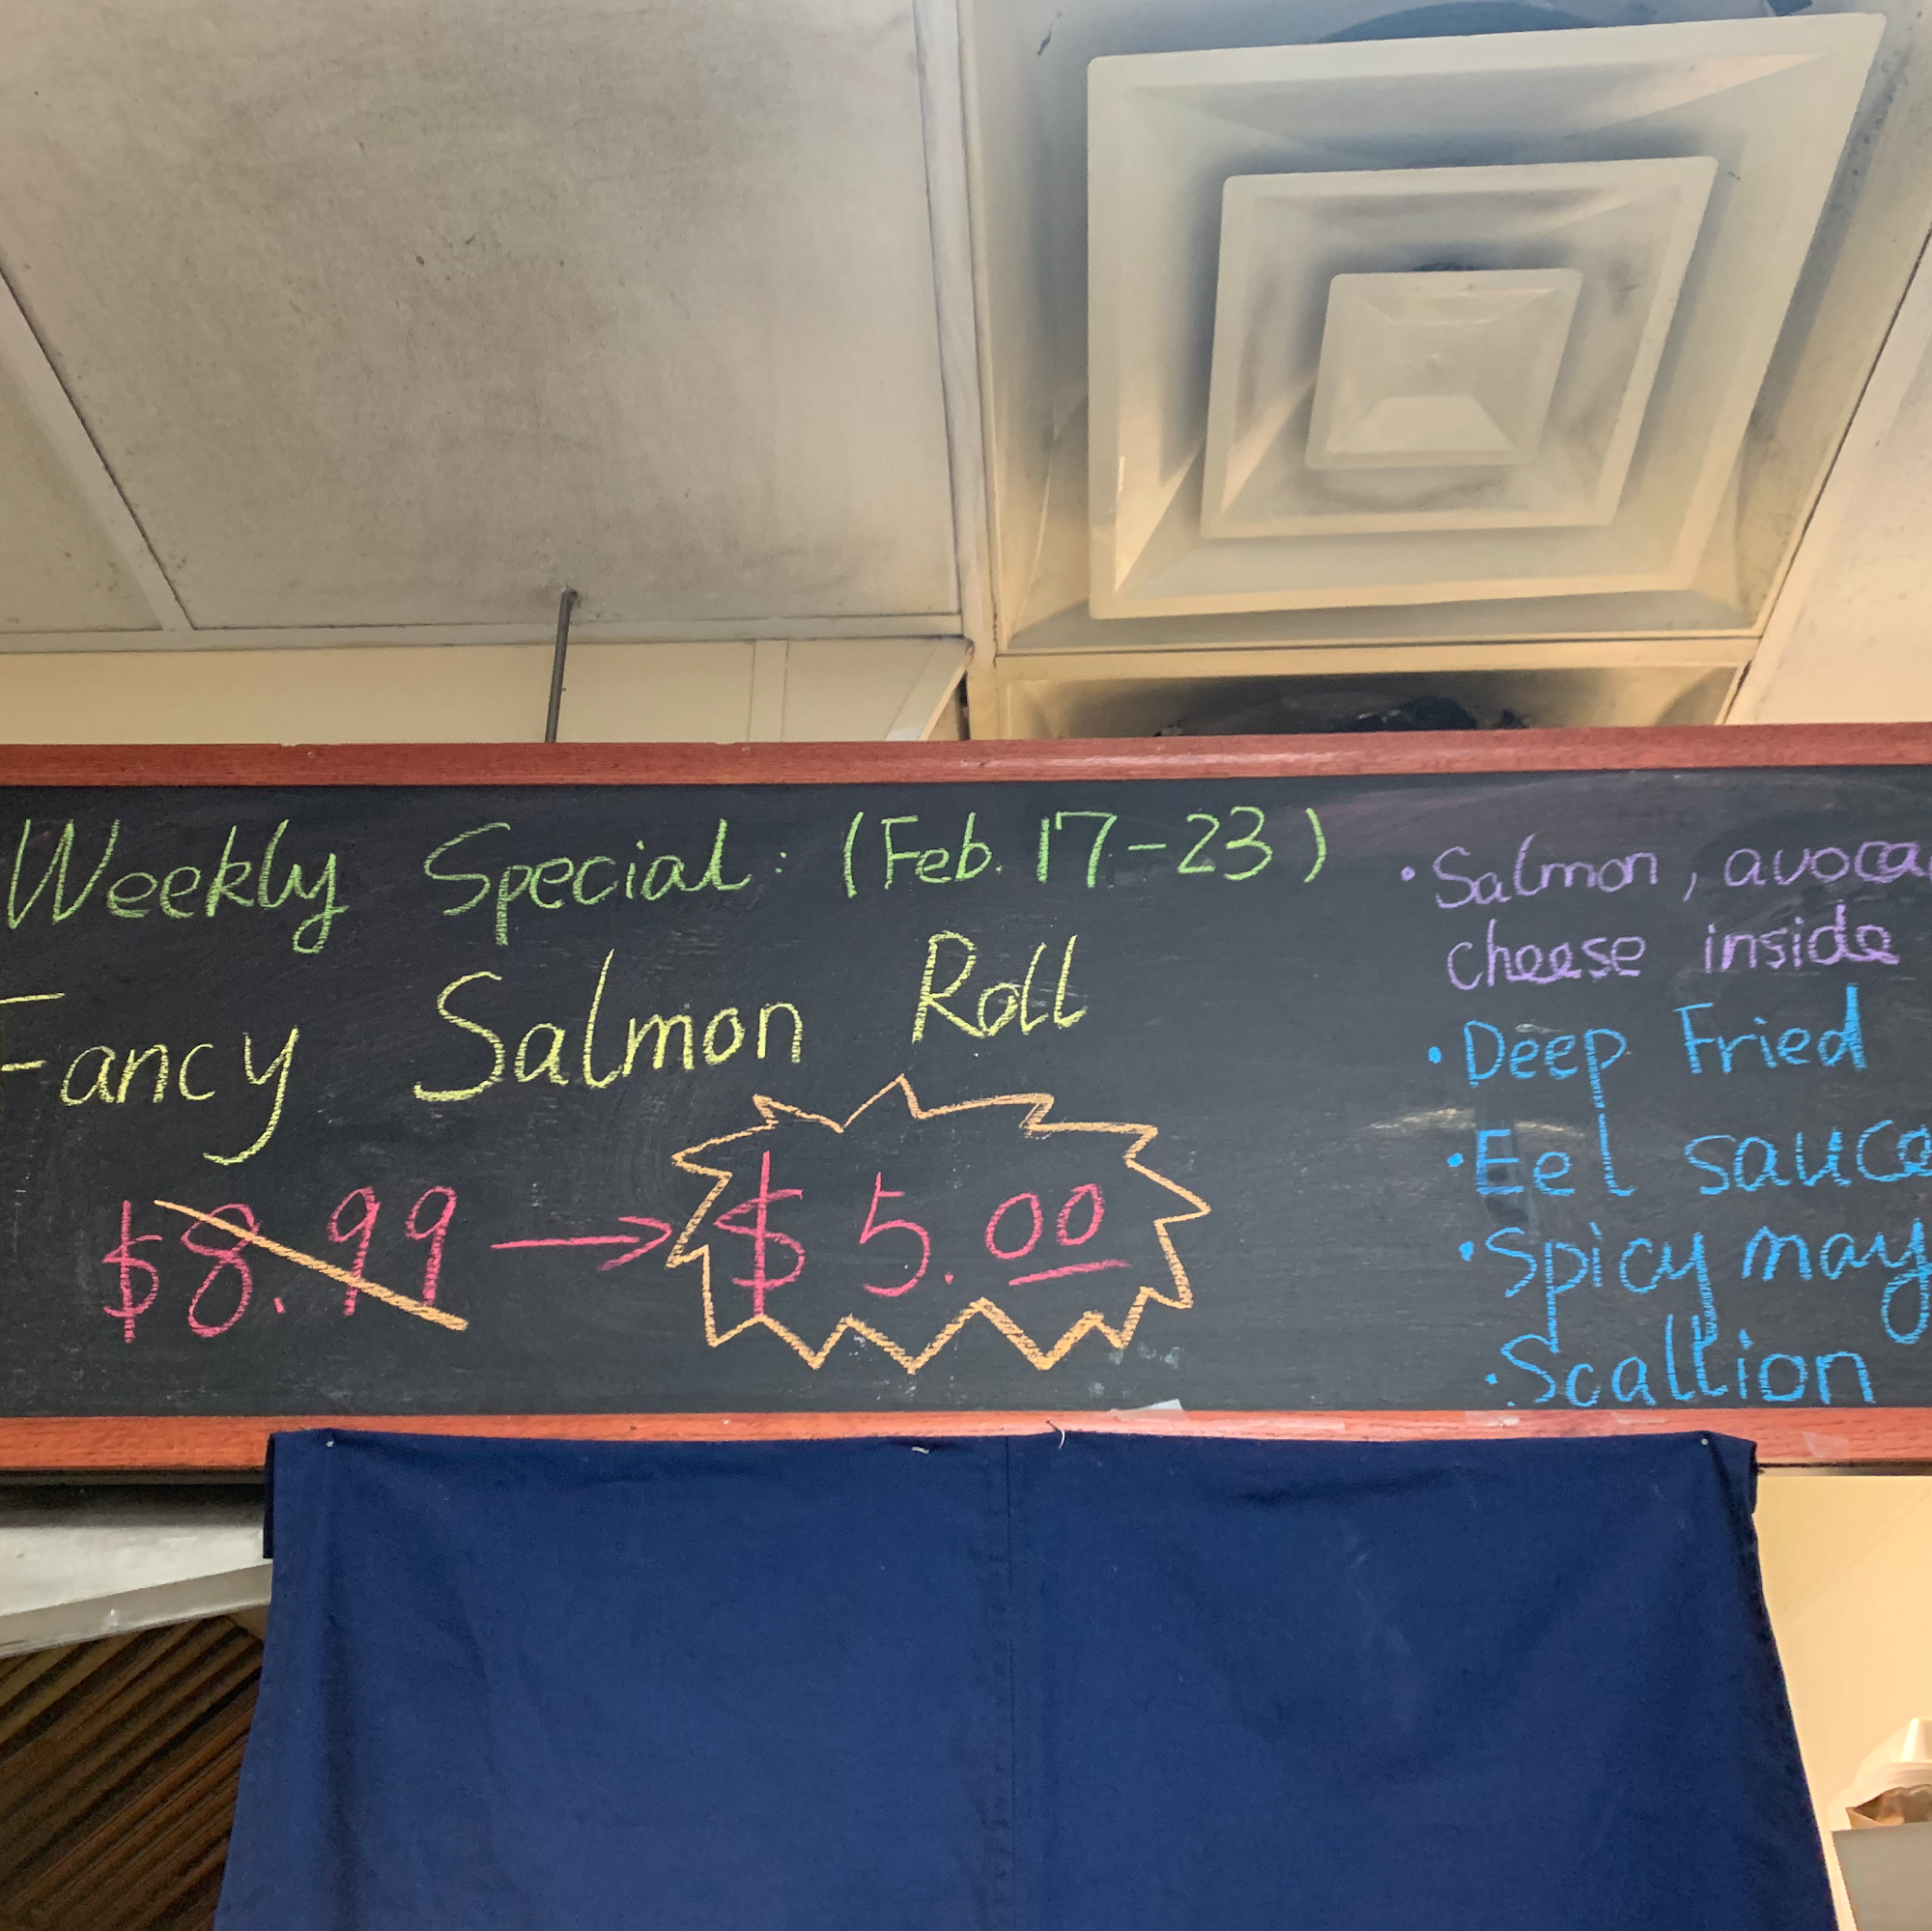 Weekly Special: (Feb. 17-23)
Fancy Salmon Roll
$8.99 → $5.00
• Salmon, avoca
cheese inside
• Deep Fried
• Eel sauce
• Spicy may
• Scallion